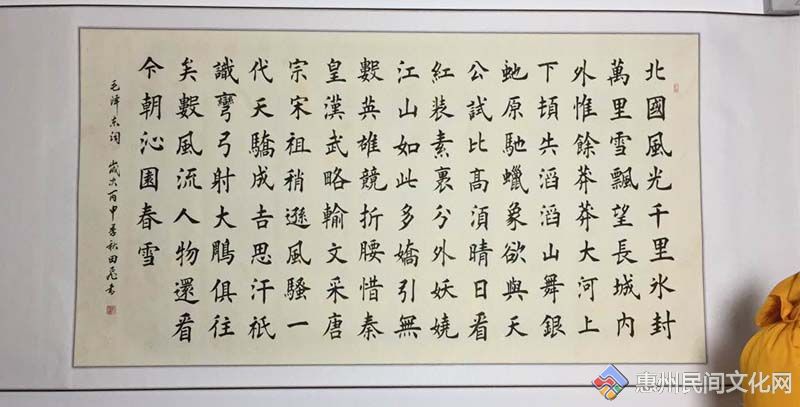 北國風光千里冰封
萬里雪飄望長城內
外惟餘莽莽大河上
下頓失滔滔山舞銀
虵原馳蠟象欲與天
公試比高須晴日看
紅裝素裹分外妖嬈
江山如此多嬌引無
數英雄競折腰惜秦
皇漢武略輸文采唐
宗宋祖稍遜風騷一
代天驕成吉思汗祇
識彎弓射大鵰俱往
矣數風流人物還看
今朝沁園春雪
毛澤东詞 歲次丙申季秋田飛書
惠州民间文化网